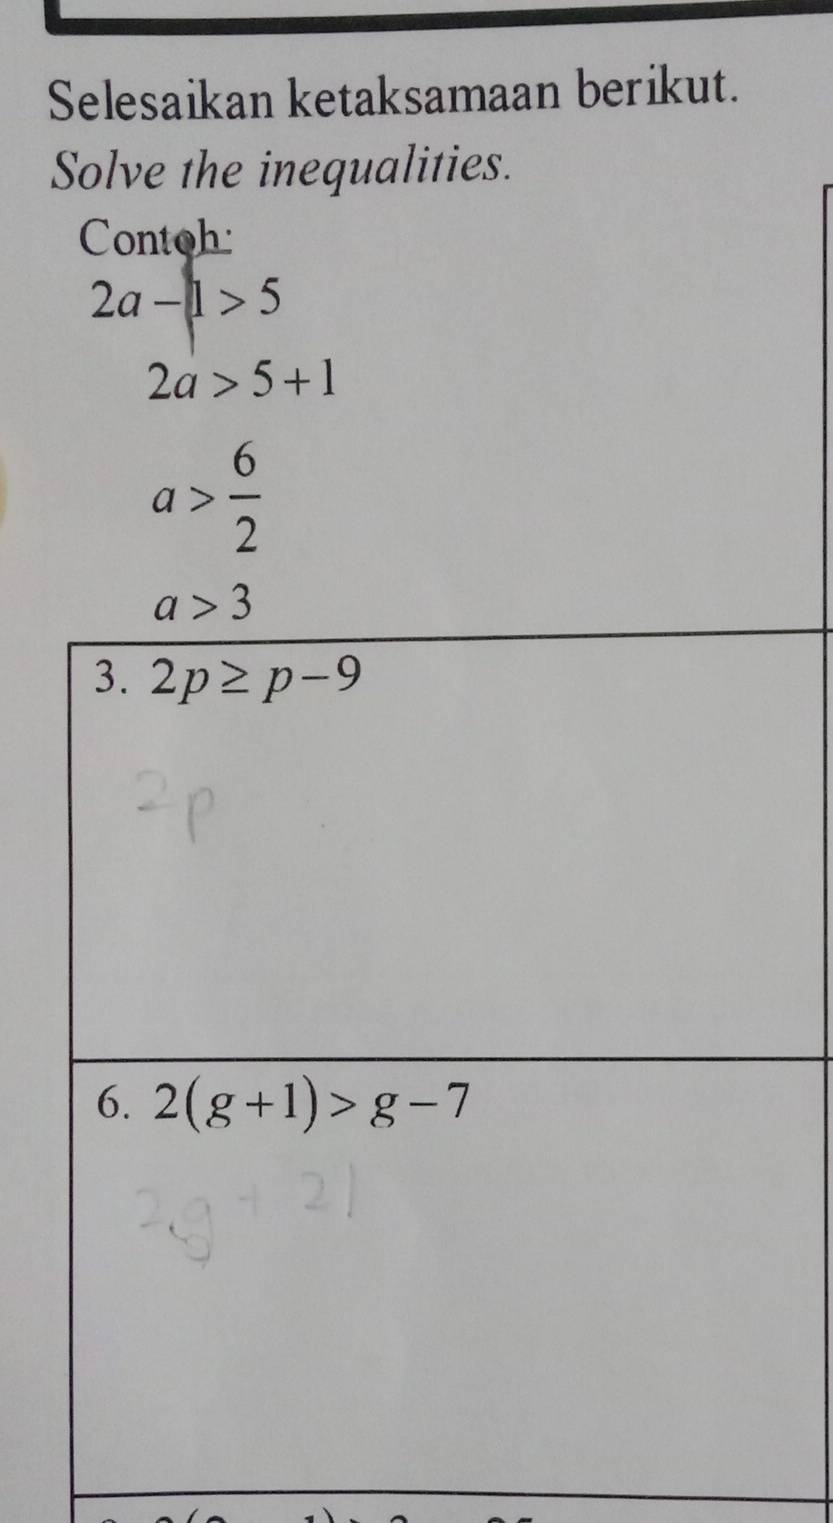 Selesaikan ketaksamaan berikut.
Solve the inequalities.
Contoh:
2a − 1 > 5
2a > 5 + 1
a > 6/2
a > 3
3. 2p ≥ p − 9
2p
6. 2(g + 1) > g − 7
2g + 21